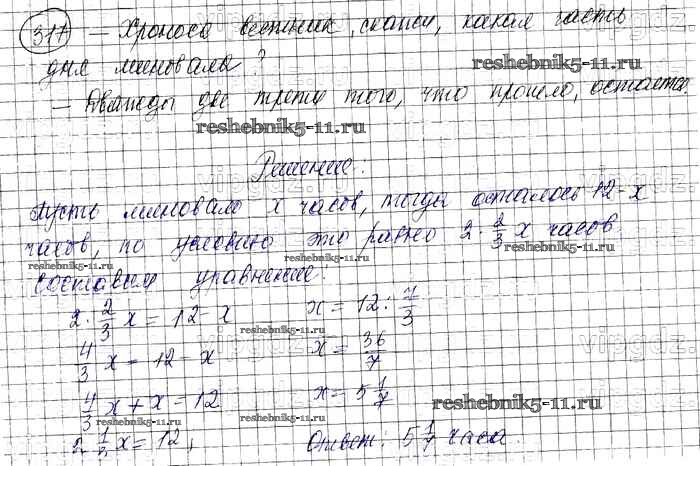 317 — Хроноса вестник, скажи, какая часть
дня миновала?
reshebnik5-11.ru
— Дважды две трети того, что прошло, остается.
reshebnik5-11.ru
Решение:
vipgdz.ru
Пусть миновало x часов, тогда осталось 12-x
часов, по условию это равно 2·2/3 x часов.
reshebnik5-11.ru
reshebnik5-11.ru
Составим уравнение:
2·2/3 x = 12-x
x = 12 : 7/3
reshebnik5-11.ru
4/3 x = 12-x
x = 36/7
vipgdz.ru
4/3 x + x = 12
x = 5 1/7
reshebnik5-11.ru
reshebnik5-11.ru
reshebnik5-11.ru
2 1/3 x = 12,
Ответ: 5 1/7 часа.